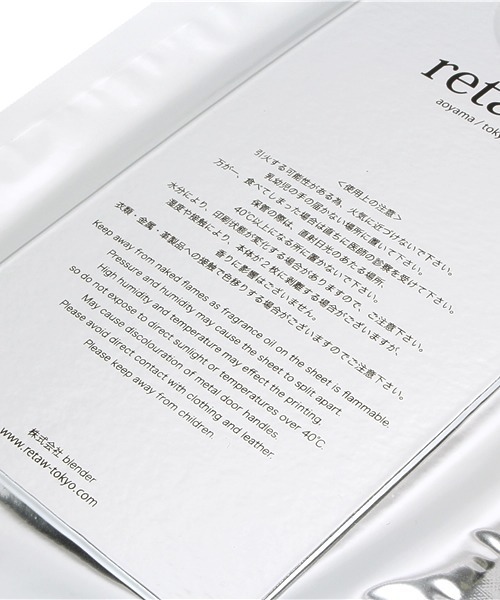 reta
aoyama / toky
<使用上の注意>
引火する可能性がある為、火気に近づけないで下さい。
乳幼児の手の届かない場所に置いて下さい。
万が一、食べてしまった場合は直ちに医師の診察を受けて下さい。
保管の際は、直射日光のあたる場所、
40℃以上になる所に置かないで下さい。
水分により、印刷状態が変化する場合がありますので、ご注意下さい。
湿度や接触により、本体が2枚に剥離する場合がございますが、
香りに影響はございません。
衣類・金属・革製品への接触で色移りする場合がございますのでご注意下さい。
Keep away from naked flames as fragrance oil on the sheet is flammable.
Pressure and humidity may cause the sheet to split apart.
High humidity and temperature may effect the printing.
so do not expose to direct sunlight or temperatures over 40℃.
May cause discolouration of metal door handles.
Please avoid direct contact with clothing and leather.
Please keep away from children.
株式会社 blender
www.retaw-tokyo.com